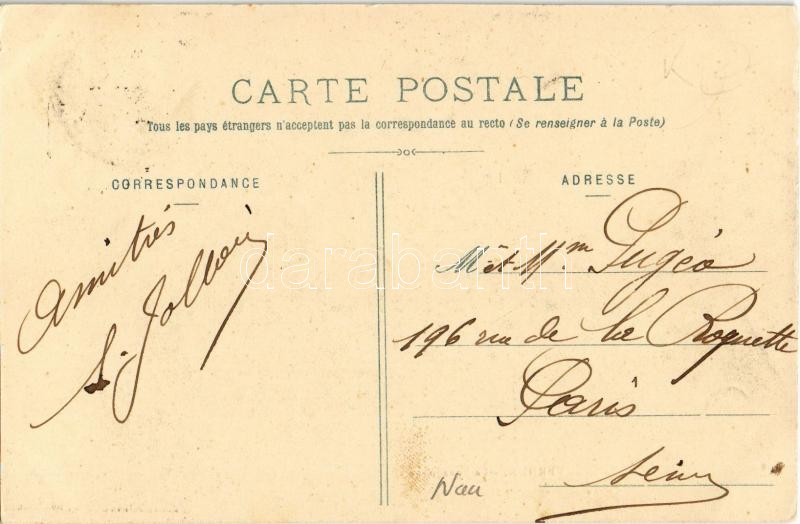 CARTE POSTALE
Tous les pays étrangers n'acceptent pas la correspondance au recto (Se renseigner à la Poste)
CORRESPONDANCE
Amitiés
ADRESSE
M et Mm
196 rue de la Roquette
Paris
Seine
darabanth